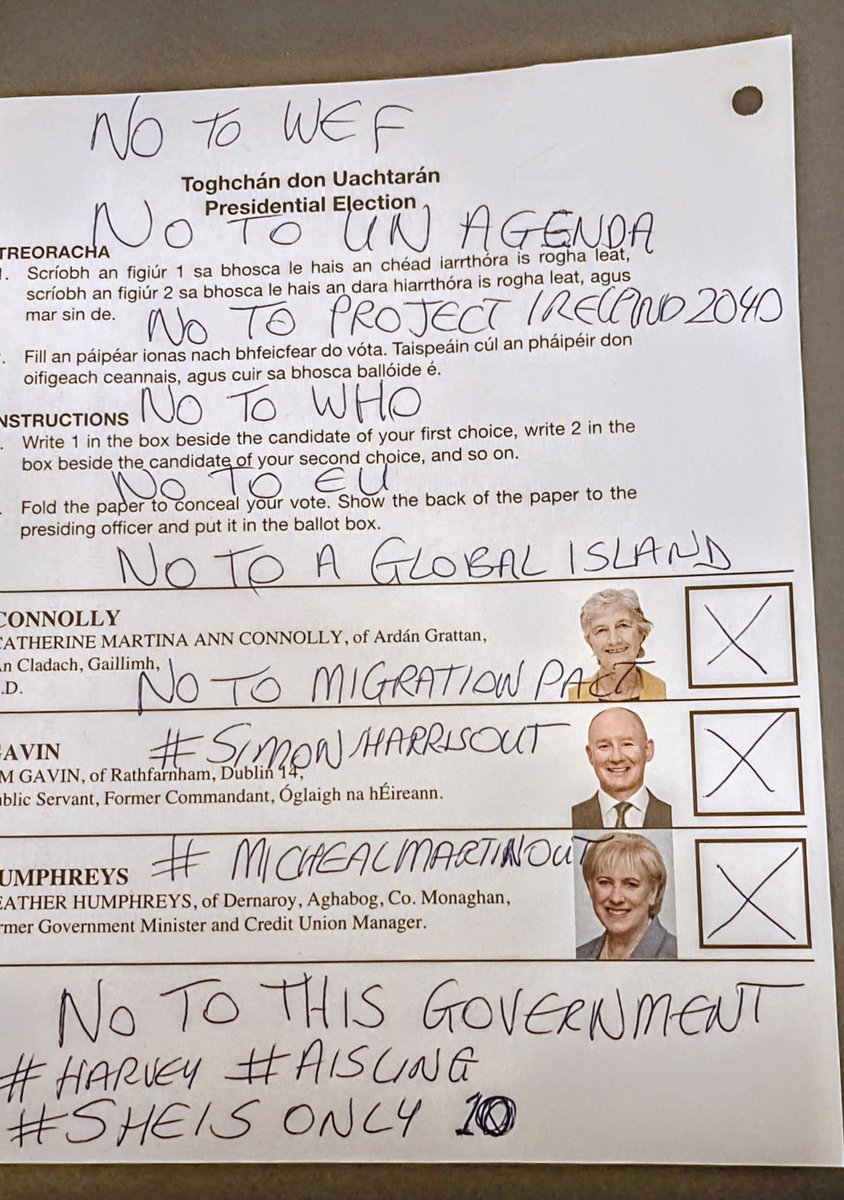 NO TO WEF
Toghchán don Uachtarán
Presidential Election
NO TO UN AGENDA
TREORACHA
Scríobh an figiúr 1 sa bhosca le hais an chéad iarrthóra is rogha leat,
scríobh an figiúr 2 sa bhosca le hais an dara hiarrthóra is rogha leat, agus
mar sin de.
NO TO PROJECT IRELAND 2040
Fill an páipéar ionas nach bhfeicfear do vóta. Taispeáin cúl an pháipéir don
oifigeach ceannais, agus cuir sa bhosca ballóide é.
NO TO WHO
NSTRUCTIONS
Write 1 in the box beside the candidate of your first choice, write 2 in the
box beside the candidate of your second choice, and so on.
NO TO EU
Fold the paper to conceal your vote. Show the back of the paper to the
presiding officer and put it in the ballot box.
NO TO A GLOBAL ISLAND
CONNOLLY
CATHERINE MARTINA ANN CONNOLLY, of Ardán Grattan,
An Cladach, Gaillimh,
.D.
X
NO TO MIGRATION PACT
#SIMONHARRISOUT
GAVIN
M GAVIN, of Rathfarnham, Dublin 14,
ublic Servant, Former Commandant, Óglaigh na hÉireann.
X
# MICHEALMARTINOUT
UMPHREYS
EATHER HUMPHREYS, of Dernaroy, Aghabog, Co. Monaghan,
rmer Government Minister and Credit Union Manager.
X
NO TO THIS GOVERNMENT
#HARVEY #AISLING
#SHEIS ONLY 10